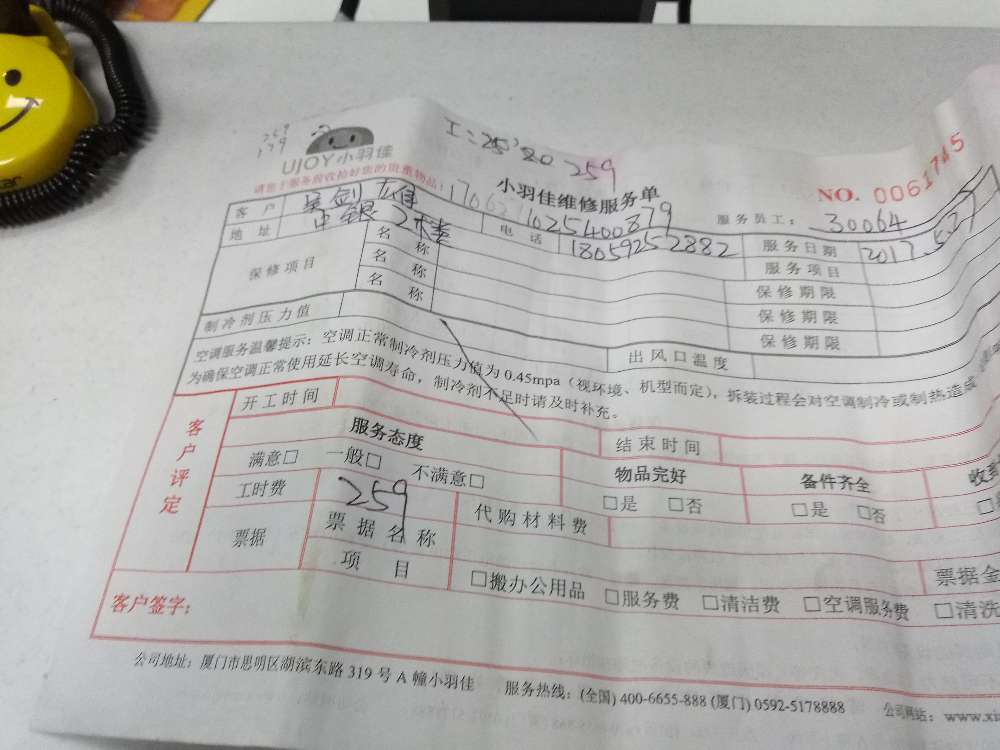 259
179
UJOY小羽佳
工:25'80 259
请您于服务前收拾好您的贵重物品:
1706271025400879
小羽佳维修服务单
NO. 0061745
服务员工: 30064
客户
电话 18059252882 服务日期 2017.5.27
地址 中银2楼
保修项目 名称 服务项目
名称 保修期限
名称 保修期限
保修期限
制冷剂压力值 出风口温度
空调服务温馨提示:空调正常制冷剂压力值为0.45mpa(视环境、机型而定),拆装过程会对空调制冷或制热造成
为确保空调正常使用延长空调寿命,制冷剂不足时请及时补充。
客户评定
开工时间 结束时间
服务态度 物品完好 备件齐全
满意□ 一般□ 不满意□ □是 □否 □是 □否
工时费 259 代购材料费
票据 票据名称 票据金
项目 □搬办公用品 □服务费 □清洁费 □空调服务费 □清洗
客户签字:
公司地址:厦门市思明区湖滨东路319号A幢小羽佳 服务热线:(全国)400-6655-888(厦门)0592-5178888 公司网站:www.xi